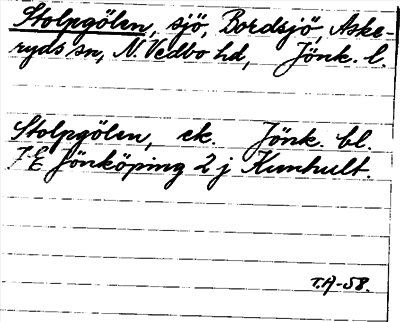 Stolpgölen, sjö, Bordsjö, Aske-
ryds sn, N. Vedbo hd, Jönk. l.
Stolpgölen, ek. Jönk. bl.
7 E Jönköping 2 j Kumhult.
T.A-58.